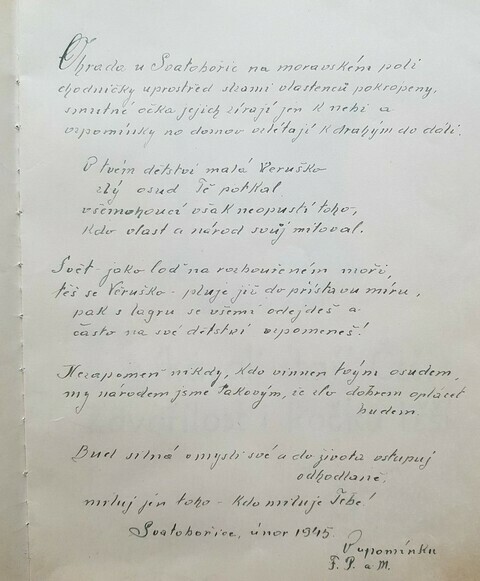 Ohrada u Svatobořic na moravském poli
chodníčky uprostřed slzami vlastenců pokropeny,
smutné očka jejich zírají jen k nebi a
vzpomínky na domov odlétají k drahým do dáli.
V tvém dětství malá Veruško
zlý osud Tě potkal
všemohoucí však neopustí toho,
kdo vlast a národ svůj miloval.
Svět - jako loď na rozbouřeném moři,
těš se Věruško - pluje již do přístavu míru,
pak s lágru se všemi odejdeš a
často na své dětství vzpomeneš!
Nezapomeň nikdy, kdo vinnen tvým osudem,
my národem jsme takovým, že zlo dobrem oplácet
budem
Buď silná v mysli své a do života vstupuj
odhodlaně,
miluj jen toho - kdo miluje Tebe!
Svatobořice, únor 1945.
Vzpomínku
F. P. a M.